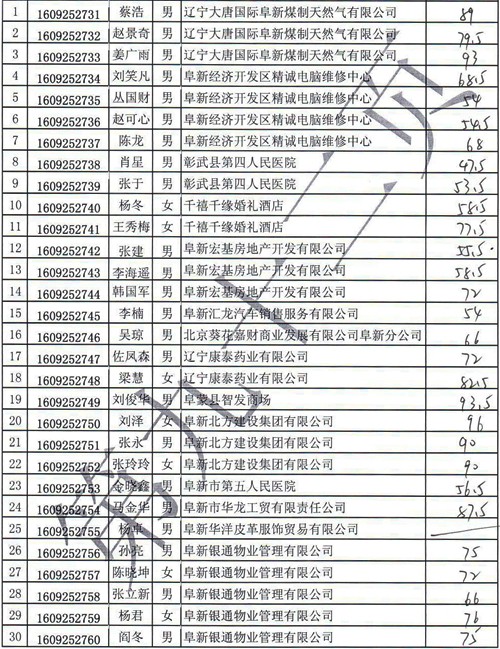 1 1609252731 蔡浩 男 辽宁大唐国际阜新煤制天然气有限公司 89
2 1609252732 赵景奇 男 辽宁大唐国际阜新煤制天然气有限公司 79.5
3 1609252733 姜广雨 男 辽宁大唐国际阜新煤制天然气有限公司 93
4 1609252734 刘笑凡 男 阜新经济开发区精诚电脑维修中心 68.5
5 1609252735 丛国财 男 阜新经济开发区精诚电脑维修中心 54
6 1609252736 赵可心 男 阜新经济开发区精诚电脑维修中心 54.5
7 1609252737 陈龙 男 阜新经济开发区精诚电脑维修中心 68
8 1609252738 肖星 男 彰武县第四人民医院 47.5
9 1609252739 张于 男 彰武县第四人民医院 53.5
10 1609252740 杨冬 女 千禧千缘婚礼酒店 58.5
11 1609252741 王秀梅 女 千禧千缘婚礼酒店 77.5
12 1609252742 张建 男 阜新宏基房地产开发有限公司 55.5
13 1609252743 李海遥 男 阜新宏基房地产开发有限公司 58.5
14 1609252744 韩国军 男 阜新宏基房地产开发有限公司 72
15 1609252745 李楠 男 阜新汇龙汽车销售服务有限公司 54
16 1609252746 吴琼 男 北京葵花嘉财商业发展有限公司阜新分公司 66
17 1609252747 佐凤森 男 辽宁康泰药业有限公司 72
18 1609252748 梁慧 女 辽宁康泰药业有限公司 82.5
19 1609252749 刘俊华 男 阜蒙县智发商场 93.5
20 1609252750 刘泽 女 阜新北方建设集团有限公司 96
21 1609252751 张永 男 阜新北方建设集团有限公司 90
22 1609252752 张玲玲 女 阜新北方建设集团有限公司 90
23 1609252753 金晓鑫 男 阜新市第五人民医院 56.5
24 1609252754 马金华 男 阜新市华龙工贸有限责任公司 87.5
25 1609252755 杨卓 男 阜新华洋皮革服饰贸易有限公司
26 1609252756 孙亮 男 阜新银通物业管理有限公司 75
27 1609252757 陈晓坤 女 阜新银通物业管理有限公司 72
28 1609252758 张立新 男 阜新银通物业管理有限公司 66
29 1609252759 杨君 女 阜新银通物业管理有限公司 76
30 1609252760 阎冬 男 阜新银通物业管理有限公司 75
第九十二考